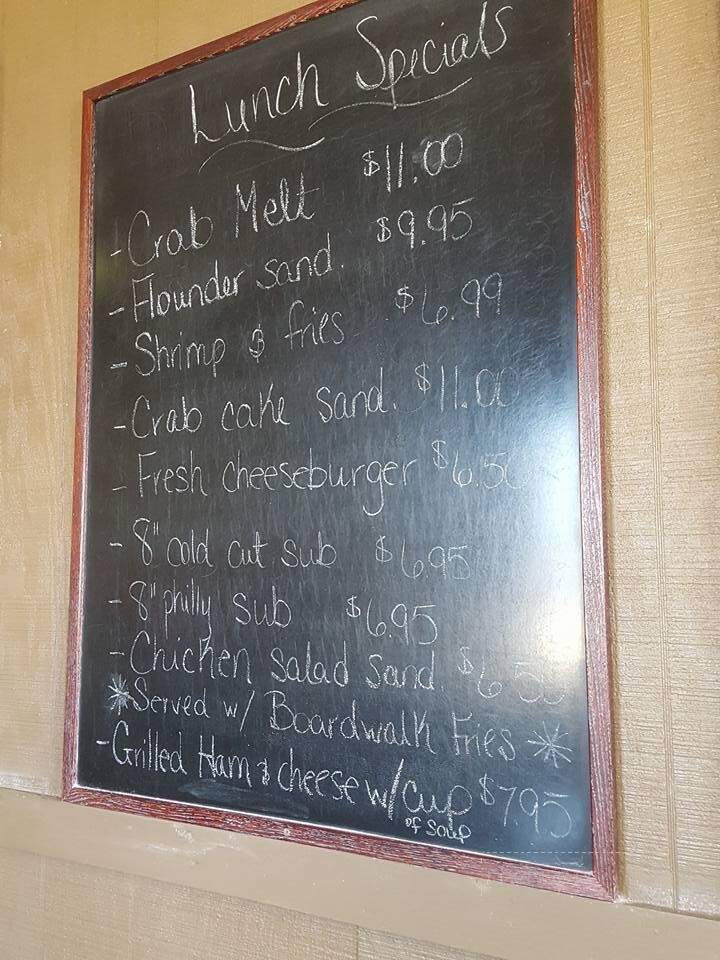 Lunch Specials
- Crab Melt $11.00
- Flounder sand. $9.95
- Shrimp & fries $6.99
- Crab cake sand. $11.00
- Fresh cheeseburger $6.50
- 8" cold cut sub $6.95
- 8" philly sub $6.95
- Chicken salad sand. $6.50
*Served w/ Boardwalk fries *
- Grilled Ham & cheese w/ cup $7.95
of soup